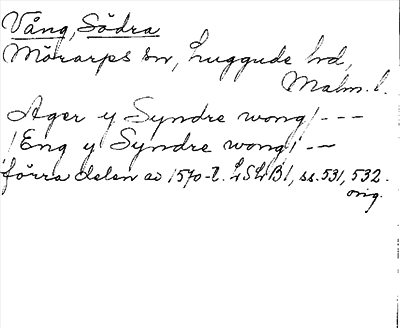 Vång, Södra
Mörarps sn, Luggude hd,
Malm. l.
Ager y Syndre wong/ - - -
/Eng y Syndre wong/ - -
förra delen av 1570-t. LSLB1, ss. 531, 532.
orig.